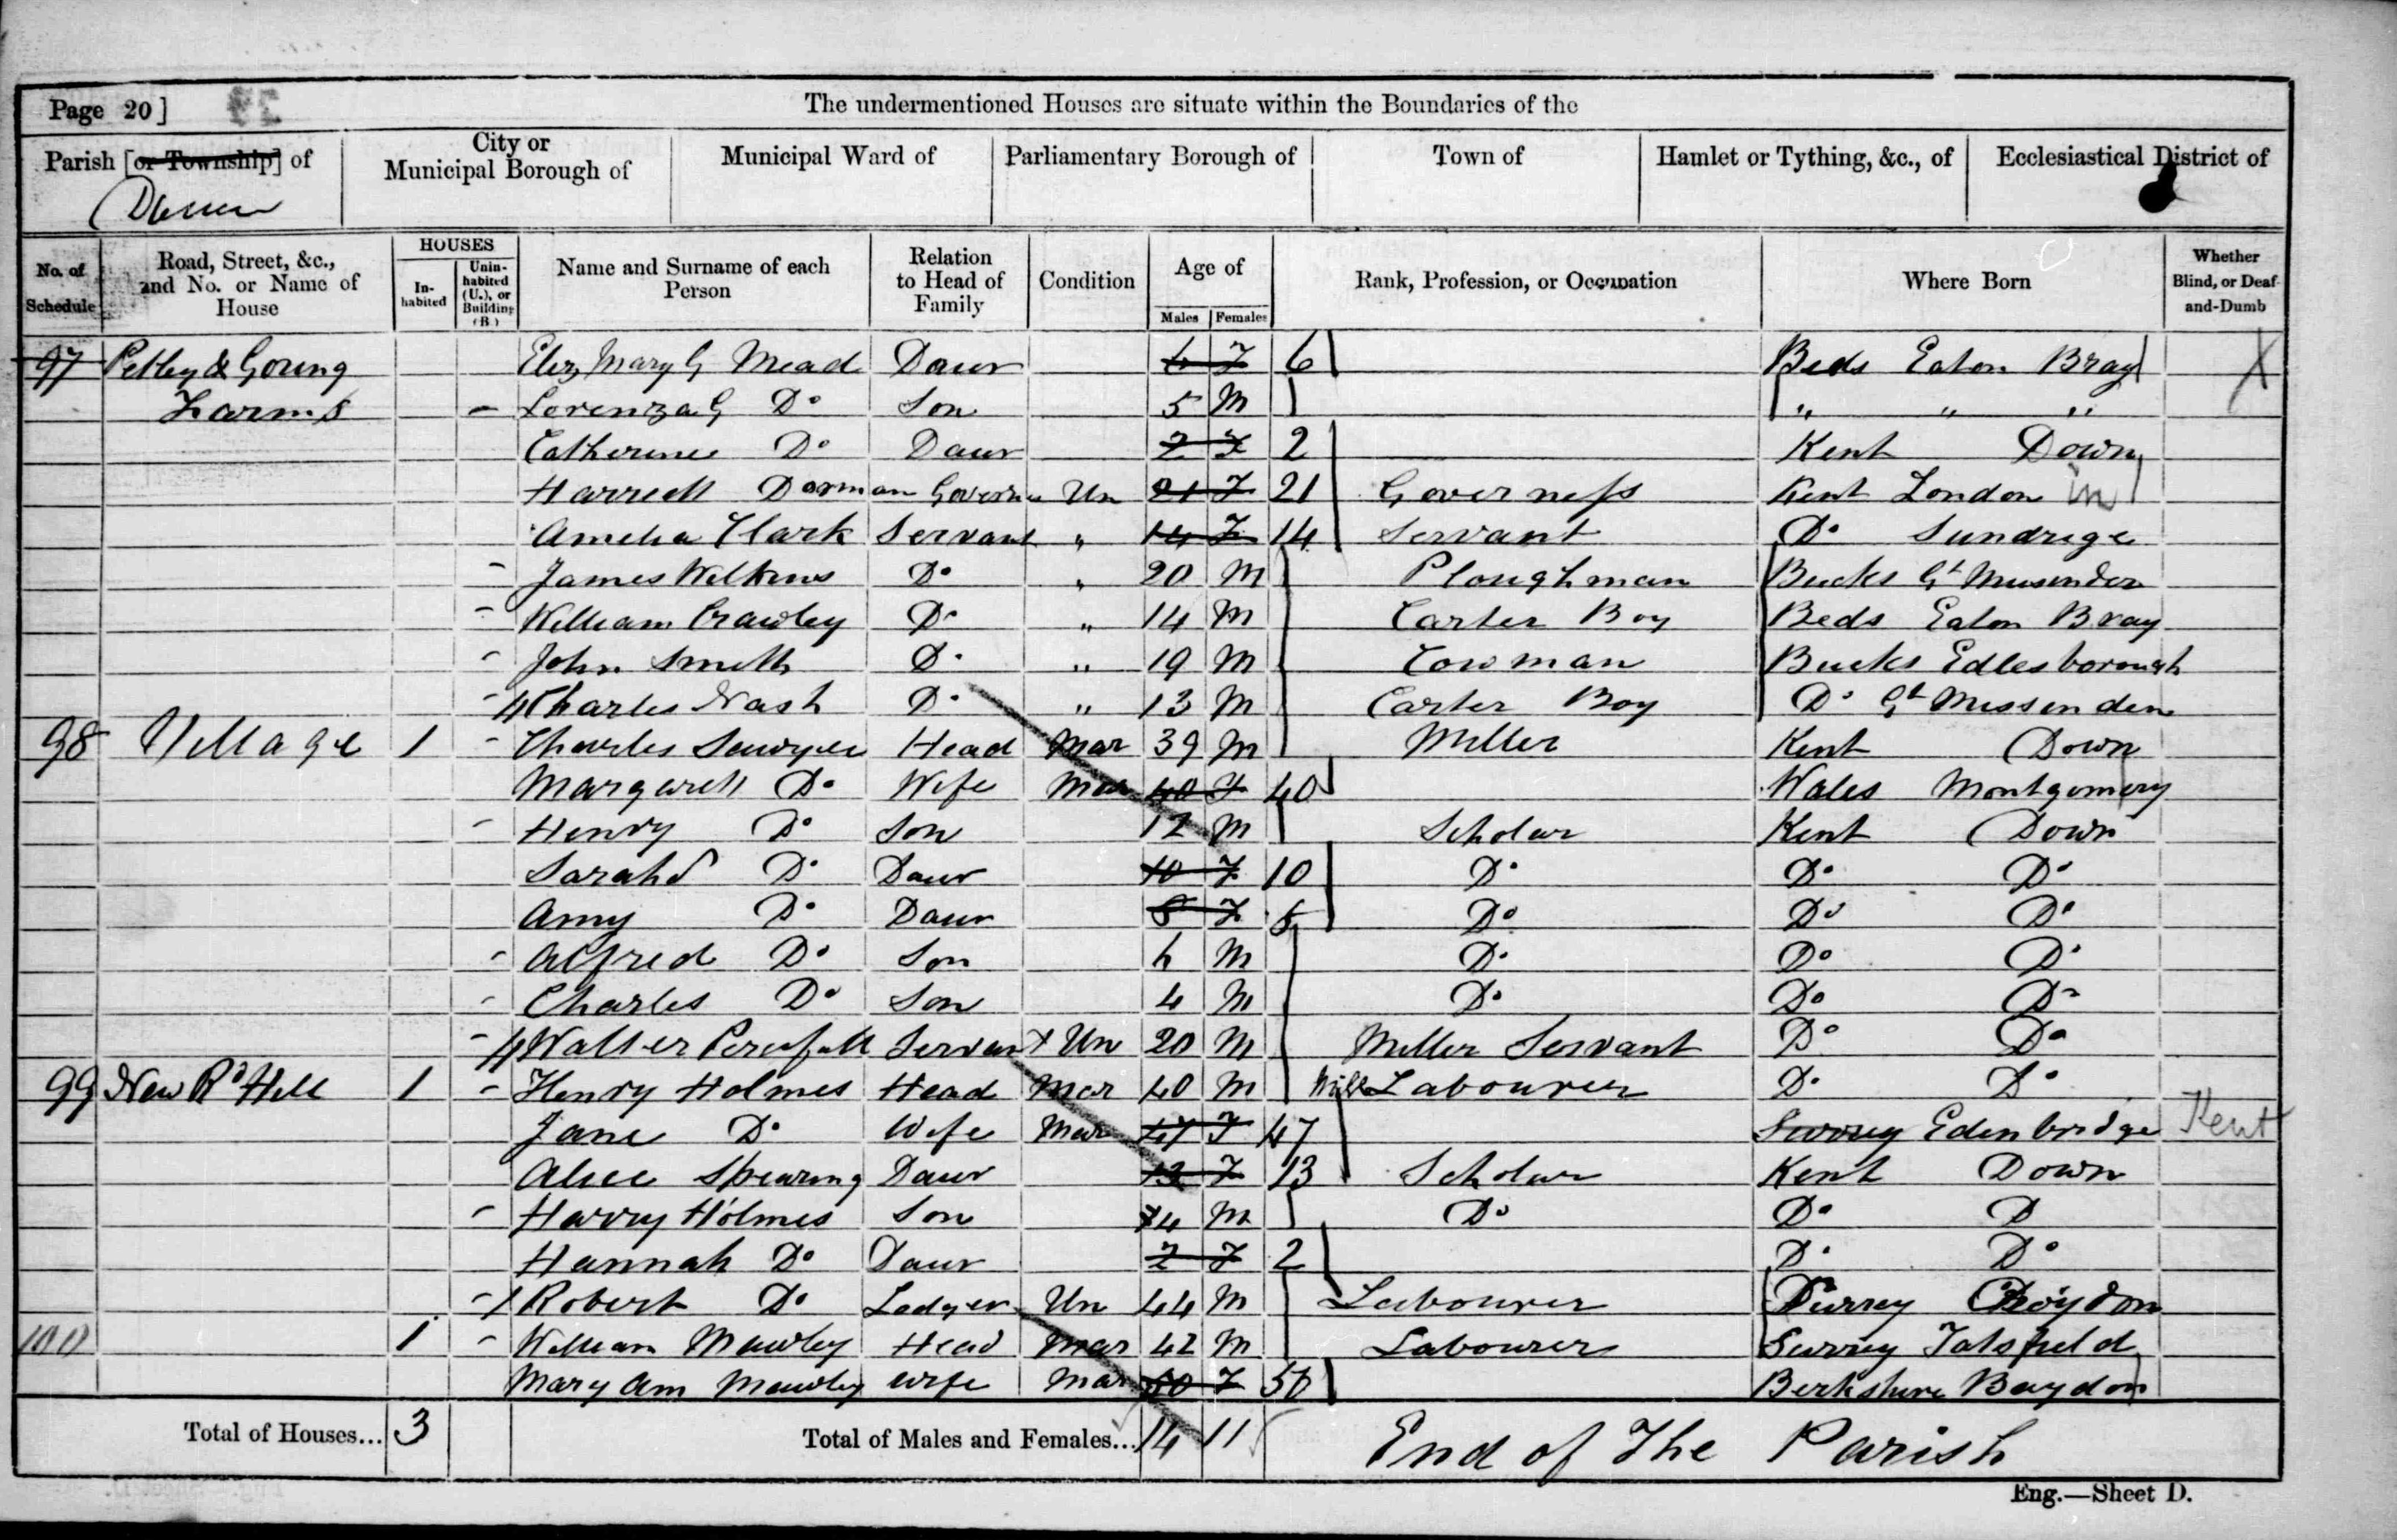 Page 20]
The undermentioned Houses are situate within the Boundaries of the
Parish [or Township] of
City or Municipal Borough of
Municipal Ward of
Parliamentary Borough of
Town of
Hamlet or Tything, &c., of
Ecclesiastical District of
Down
No. of Schedule
Road, Street, &c., and No. or Name of House
HOUSES
In-habited
Unin-habited (U.), or Building (B.)
Name and Surname of each Person
Relation to Head of Family
Condition
Age of
Males Females
Rank, Profession, or Occupation
Where Born
Whether Blind, or Deaf-and-Dumb
97 Petley & Goring Eliz Mary G Mead Daur 6 F 6 Beds Eaton Bray X
Farms Lorenza G Do Son 5 M " " "
Catherine Do Daur 2 F 2 Kent Down
Harriett Dorman Governess Un 21 F 21 Governess Kent London in
Amelia Clark Servant " 14 F 14 Servant Do Sundrige
James Wilkins Do " 20 M Ploughman Bucks Gt Musenden
William Crawley Do " 14 M Carter Boy Beds Eaton Bray
John Smith Do " 19 M Cowman Bucks Edlesborough
Charles Nash Do " 13 M Carter Boy Do Gt Missenden
98 Village 1 Charles Sawyer Head Mar 39 M Miller Kent Down
Margarett Do Wife Mar 40 F 40 Wales Montgomery
Henry Do Son 12 M Scholar Kent Down
Sarah Do Daur 10 F 10 Do Do Do
Amy Do Daur F Do Do Do
Alfred Do Son 6 M Do Do Do
Charles Do Son 4 M Do Do Do
Walter Servant Un 20 M Miller Servant Do Do
99 New Rd Hill 1 Henry Holmes Head Mar 40 M Labourer Do Do
Jane Do Wife Mar 47 F 47 Surrey Edenbridge Kent
Alice Spearing Daur 13 F 13 Scholar Kent Down
Harry Holmes Son 4 M Do Do D
Hannah Do Daur 2 F 2 Do Do
Robert Do Lodger Un 44 M Labourer Surrey Croydon
100 1 William Mawley Head Mar 42 M Labourer Surrey Tatsfield
Mary Ann Mawley Wife Mar 50 F 50 Berkshire Baydon
Total of Houses... 3
Total of Males and Females... 14 11
End of The Parish
Eng.—Sheet D.